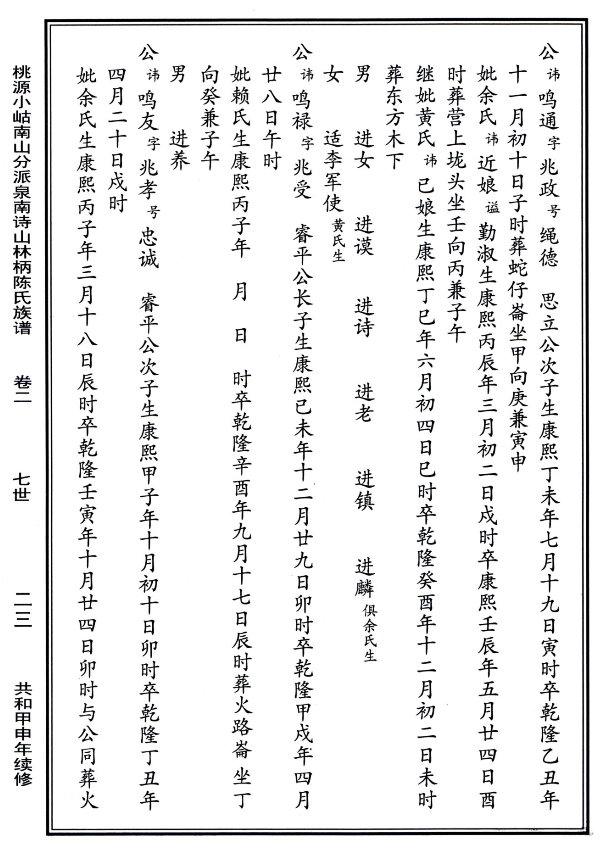 公讳鸣通字兆政号绳德　思立公次子生康熙丁未年七月十九日寅时卒乾隆乙丑年
十一月初十日子时葬蛇仔崙坐甲向庚兼寅申
妣余氏讳近娘谥勤淑生康熙丙辰年三月初二日戌时卒康熙壬辰年五月廿四日酉
时葬营上垅头坐壬向丙兼子午
继妣黄氏讳已娘生康熙丁巳年六月初四日巳时卒乾隆癸酉年十二月初二日未时
葬东方木下
男　进女　进谟　进诗　进老　进镇　进麟俱余氏生
女　适李军使黄氏生
公讳鸣禄字兆受　睿平公长子生康熙已未年十二月廿九日卯时卒乾隆甲戌年四月
廿八日午时
妣赖氏生康熙丙子年　月　日　时卒乾隆辛酉年九月十七日辰时葬火路崙坐丁
向癸兼子午
男　进养
公讳鸣友字兆孝号忠诚　睿平公次子生康熙甲子年十月初十日卯时卒乾隆丁丑年
四月二十日戌时
妣余氏生康熙丙子年三月十八日辰时卒乾隆壬寅年十月廿四日卯时与公同葬火
桃源小岵南山分派泉南诗山林柄陈氏族谱　卷二　七世　二三　共和甲申年续修